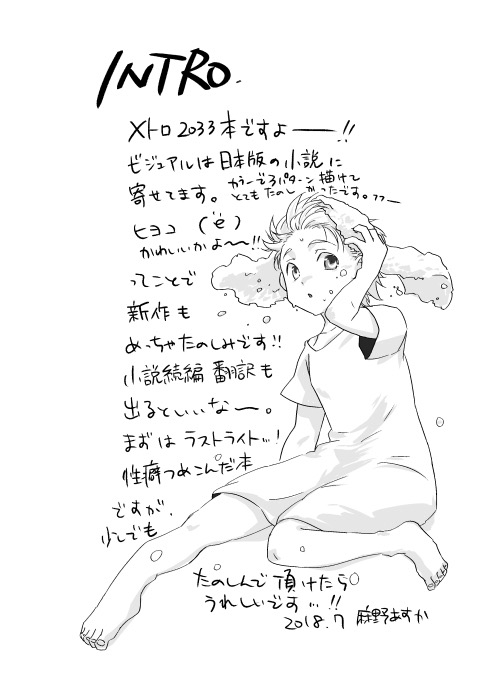 INTRO.
メトロ2033本ですよ――!!
ビジュアルは日本版の小説に
寄せてます。カラーで3パターン描けて
とてもたのしかったです。フフー
ヒヨコ (ё)
かわいいかよ〜〜!!
ってことで
新作も
めっちゃたのしみです!!
小説続編 翻訳も
出るといいなー。
まずは ラストライト…!
性癖つめこんだ本
ですが、
少しでも
たのしんで頂けたら
うれしいです…!!
2018.7 麻野あすか